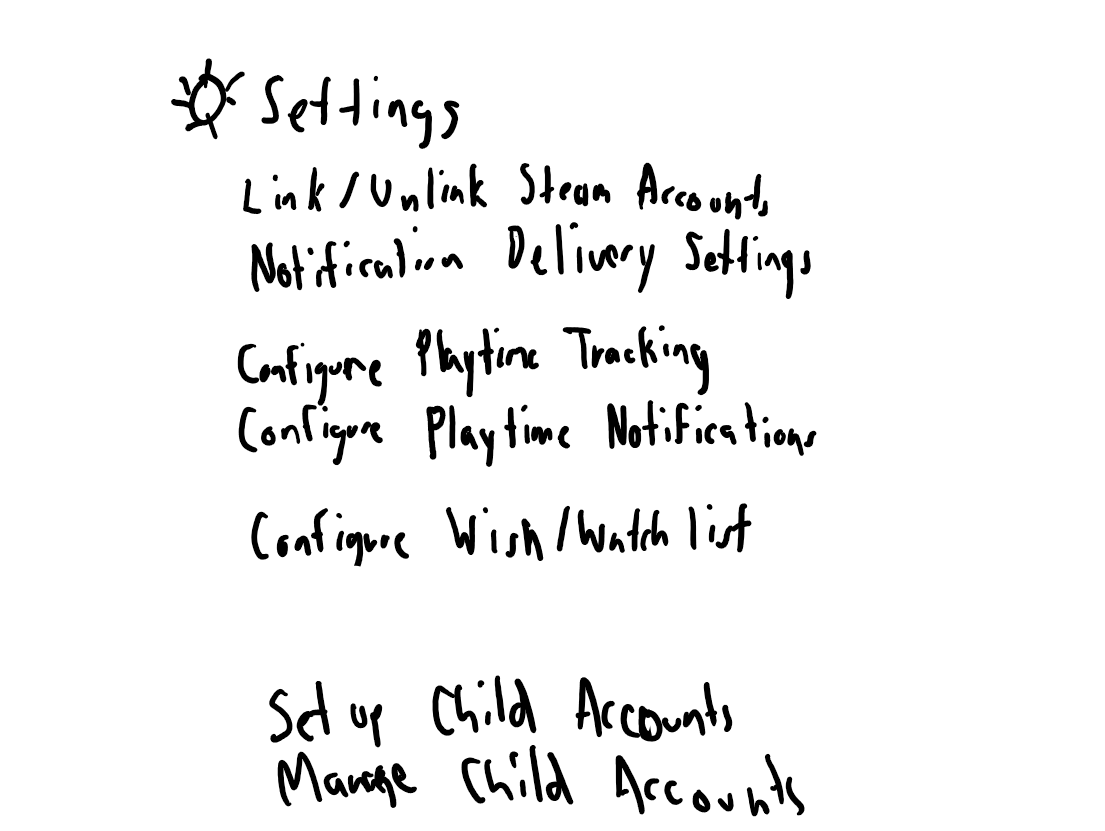 Settings
Link/Unlink Steam Accounts
Notification Delivery Settings
Configure Playtime Tracking
Configure Playtime Notifications
Configure Wish/Watch list
Set up Child Accounts
Manage Child Accounts